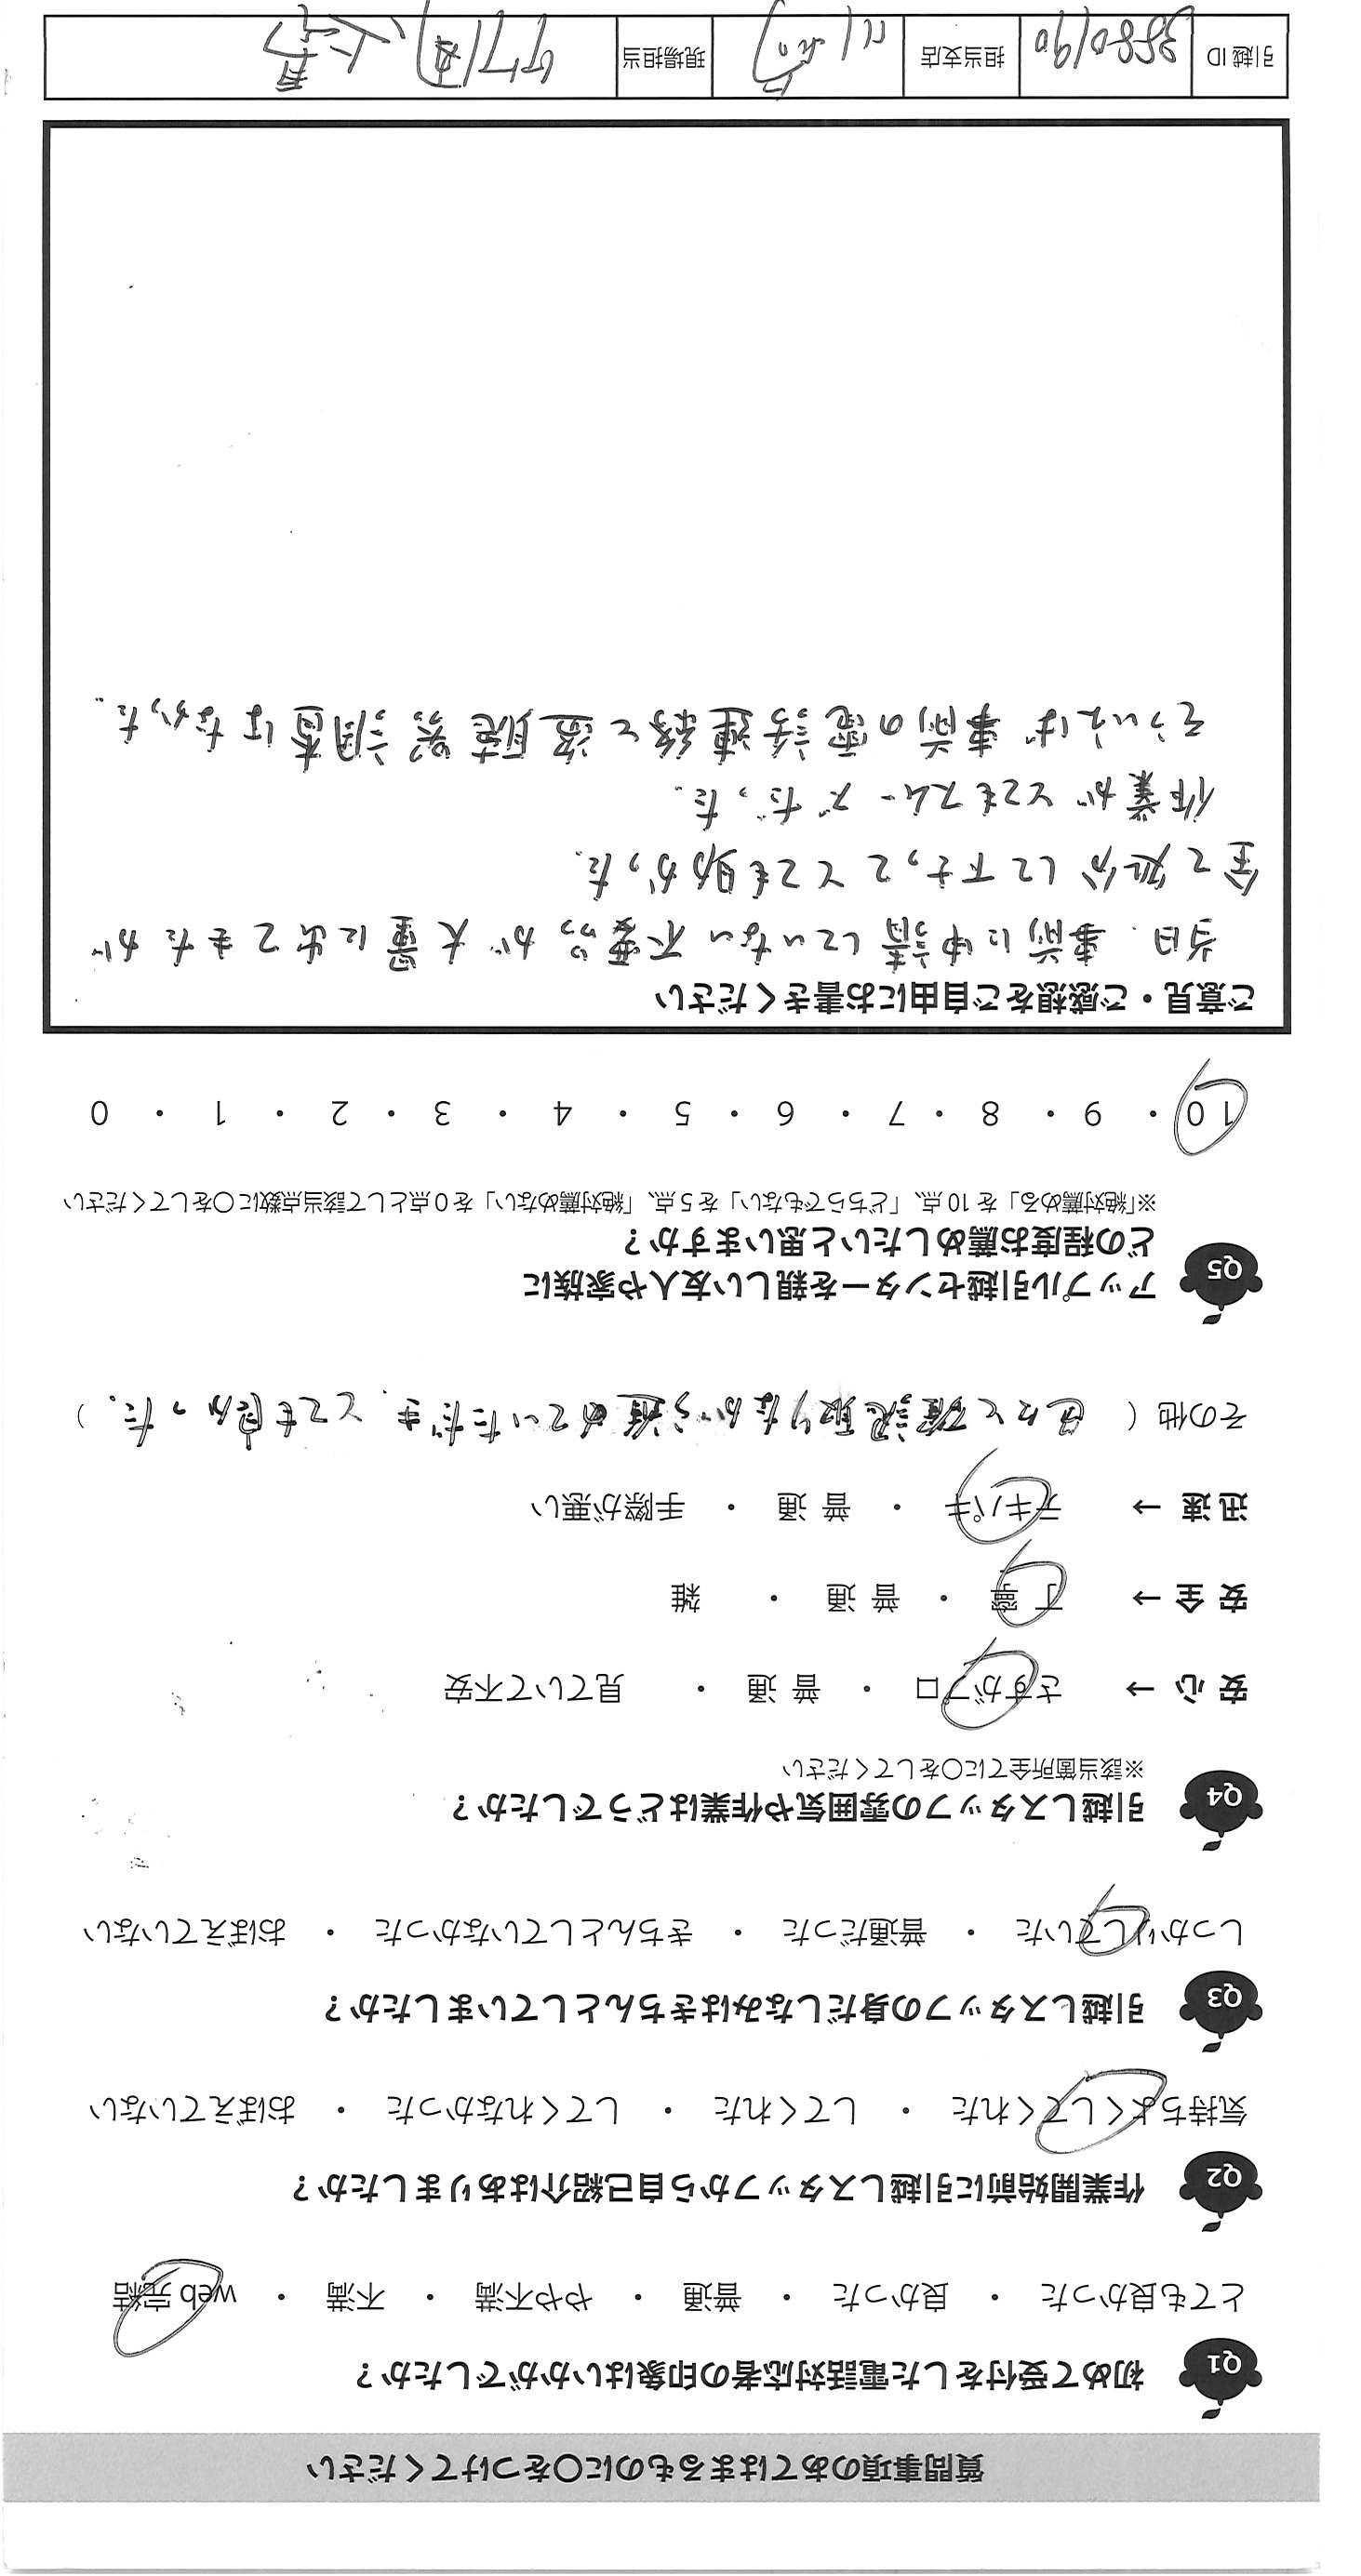 質問事項のあてはまるものに○をつけてください
Q1 初めて受付をした電話対応者の印象はいかがでしたか？
とても良かった ・ 良かった ・ 普通 ・ やや不満 ・ 不満 ・ web 完結
Q2 作業開始前に引越しスタッフから自己紹介はありましたか？
気持ちよくしてくれた ・ してくれた ・ してくれなかった ・ おぼえていない
Q3 引越しスタッフの身だしなみはきちんとしていましたか？
しっかりしていた ・ 普通だった ・ きちんとしていなかった ・ おぼえていない
Q4 引越しスタッフの雰囲気や作業はどうでしたか？
※該当箇所全てに○をしてください
安 心 → さすがプロ ・ 普 通 ・ 見ていて不安
安 全 → 丁 寧 ・ 普 通 ・ 雑
迅 速 → テキパキ ・ 普 通 ・ 手際が悪い
その他（ 色々と確認取りながら進めていただき、とても良かった。）
Q5 アップル引越センターを親しい友人や家族に
どの程度お薦めしたいと思いますか？
※「絶対薦める」を 10 点、「どちらでもない」を 5 点、「絶対薦めない」を 0 点として該当点数に○をしてください
10 ・ 9 ・ 8 ・ 7 ・ 6 ・ 5 ・ 4 ・ 3 ・ 2 ・ 1 ・ 0
ご意見・ご感想をご自由にお書きください
当日、事前に申請していない不要物が大量に出てきたが
全て処分して下さってとても助かった。
作業がとてもスムーズだった。
そういえば事前の電話連絡と盗聴器調査はなかった。
引越 ID 3580190 担当支店 現場担当